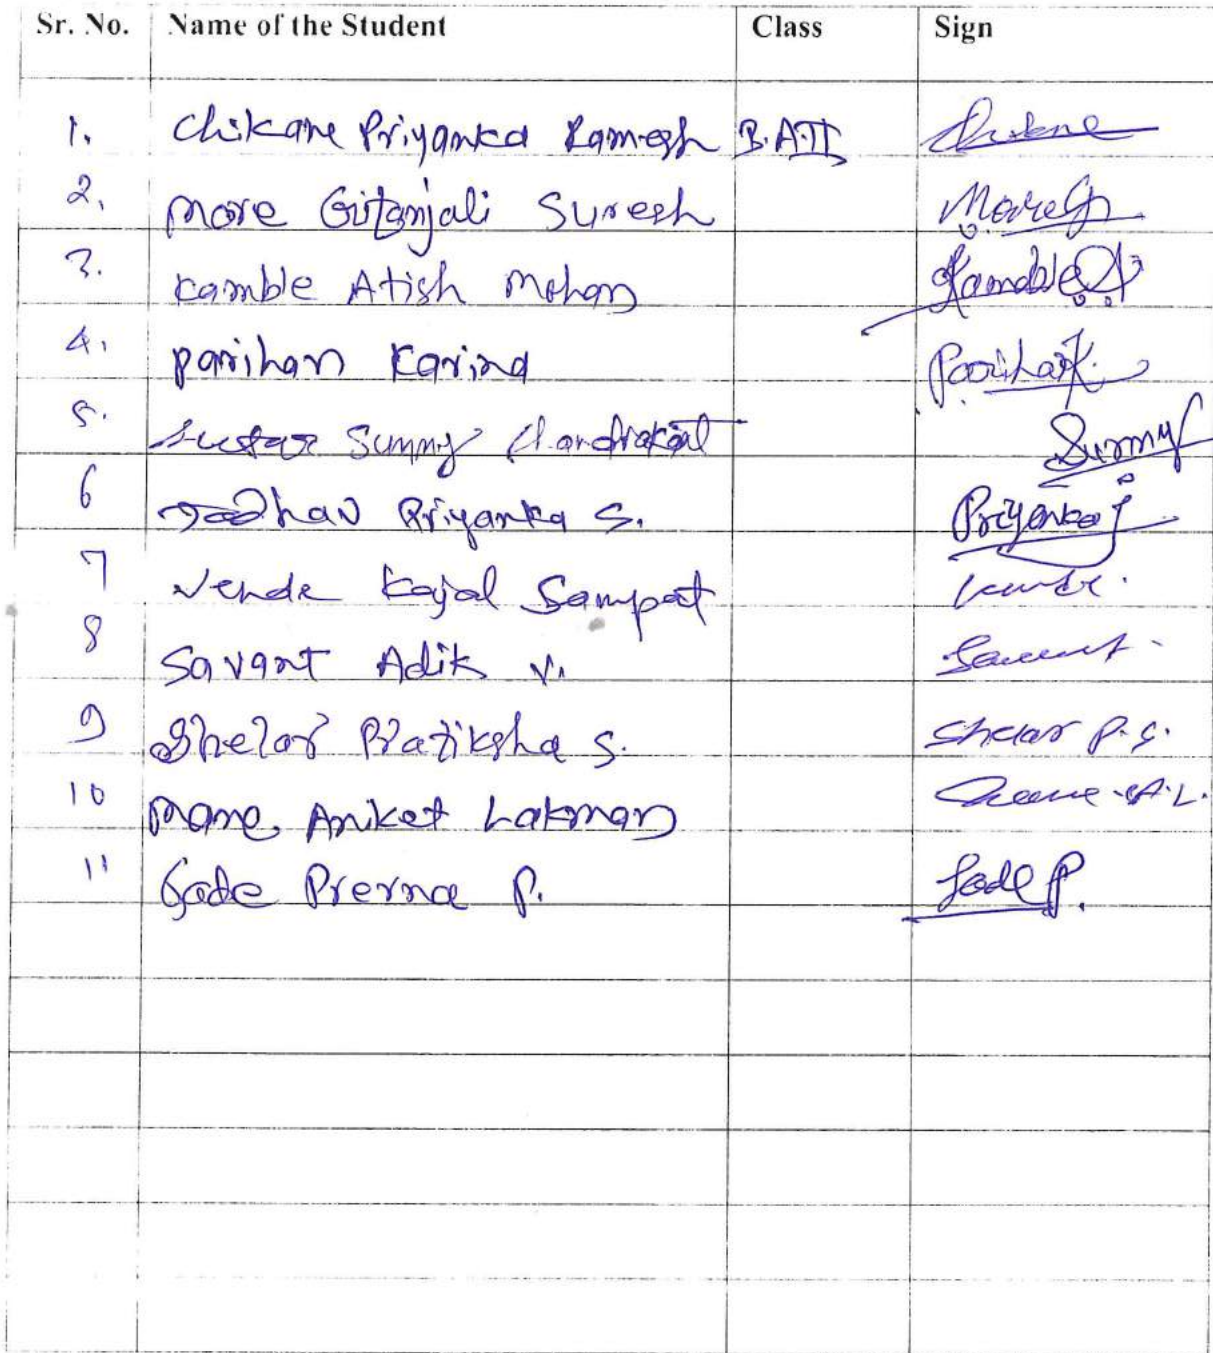 Sr. No. Name of the Student Class Sign
1. Chikane Priyanka Ramesh B.A.II
2. More Gitanjali Suresh More G
3. Kamble Atish Mohan Kamble A
4. Parihar Karina Parihar K.
5. Sutar Sunny Chandrakant Sunny
6 Jadhav Priyanka S. Priyanka J
7 Vende Kajal Sampat
8 Savant Adik V. Savant
9 Shelar Pratiksha S. Shelar P.S.
10 Mane Aniket Lakman A.L.
11 Gade Prerna P. Gade P.